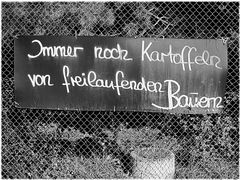 Immer noch Kartoffeln
von freilaufenden
Bauern